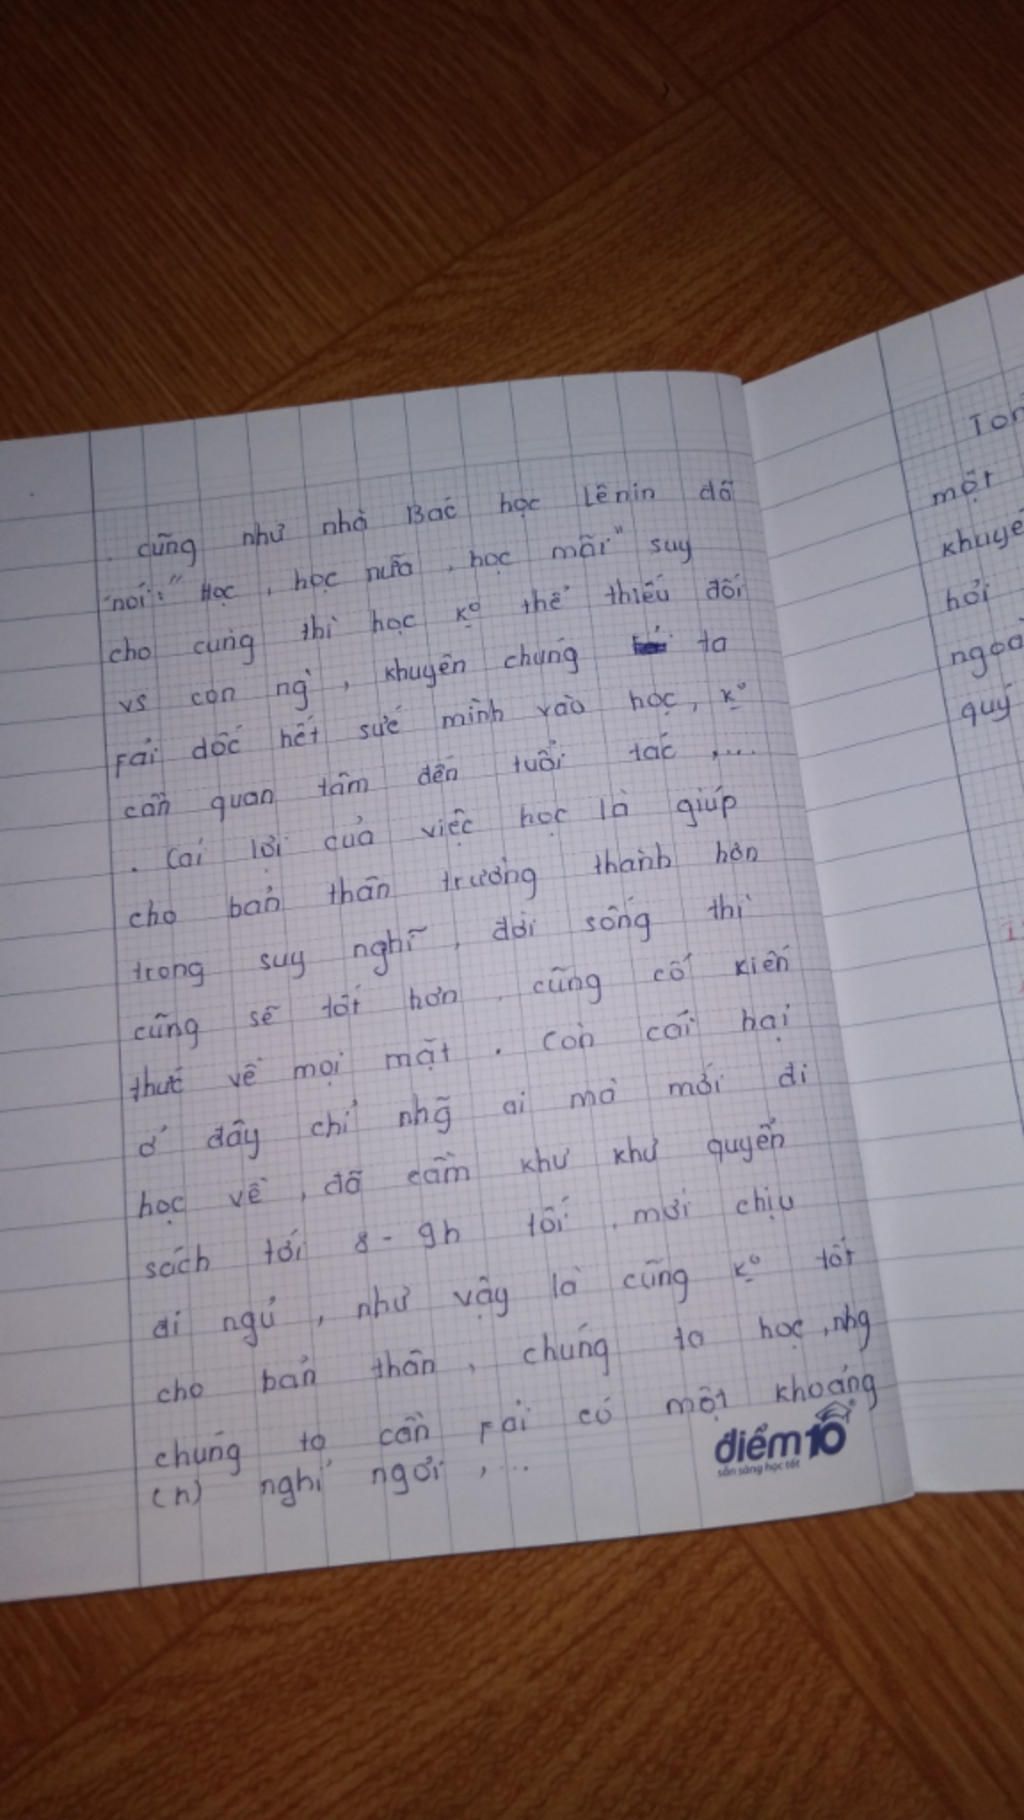 . cũng như nhà Bác học Lênin đã
nói: "Học, học nữa, học mãi" suy
cho cùng thì học ko thể thiếu đối
vs con ng`, khuyên chúng ta
Fải dốc hết sức mình vào học, ko
cần quan tâm đến tuổi tác,...
. Cái lợi của việc học là giúp
cho bản thân trưởng thành hơn
trong suy nghĩ, đời sống thì
cũng sẽ tốt hơn, cũng có kiến
thức về mọi mặt. Còn cái hại
ở đây chỉ nhg~ ai mà mới đi
học về, đã cầm khư khư quyển
sách tới 8-9h tối, mới chịu
đi ngủ, như vậy là cũng ko tốt
cho bản thân, chúng ta học, nhg
chúng ta cần Fải có một khoảng
(n) nghỉ ngơi,...
điểm 10
sẵn sàng học tốt
một
khuyê
hỏi
ngoà
quý